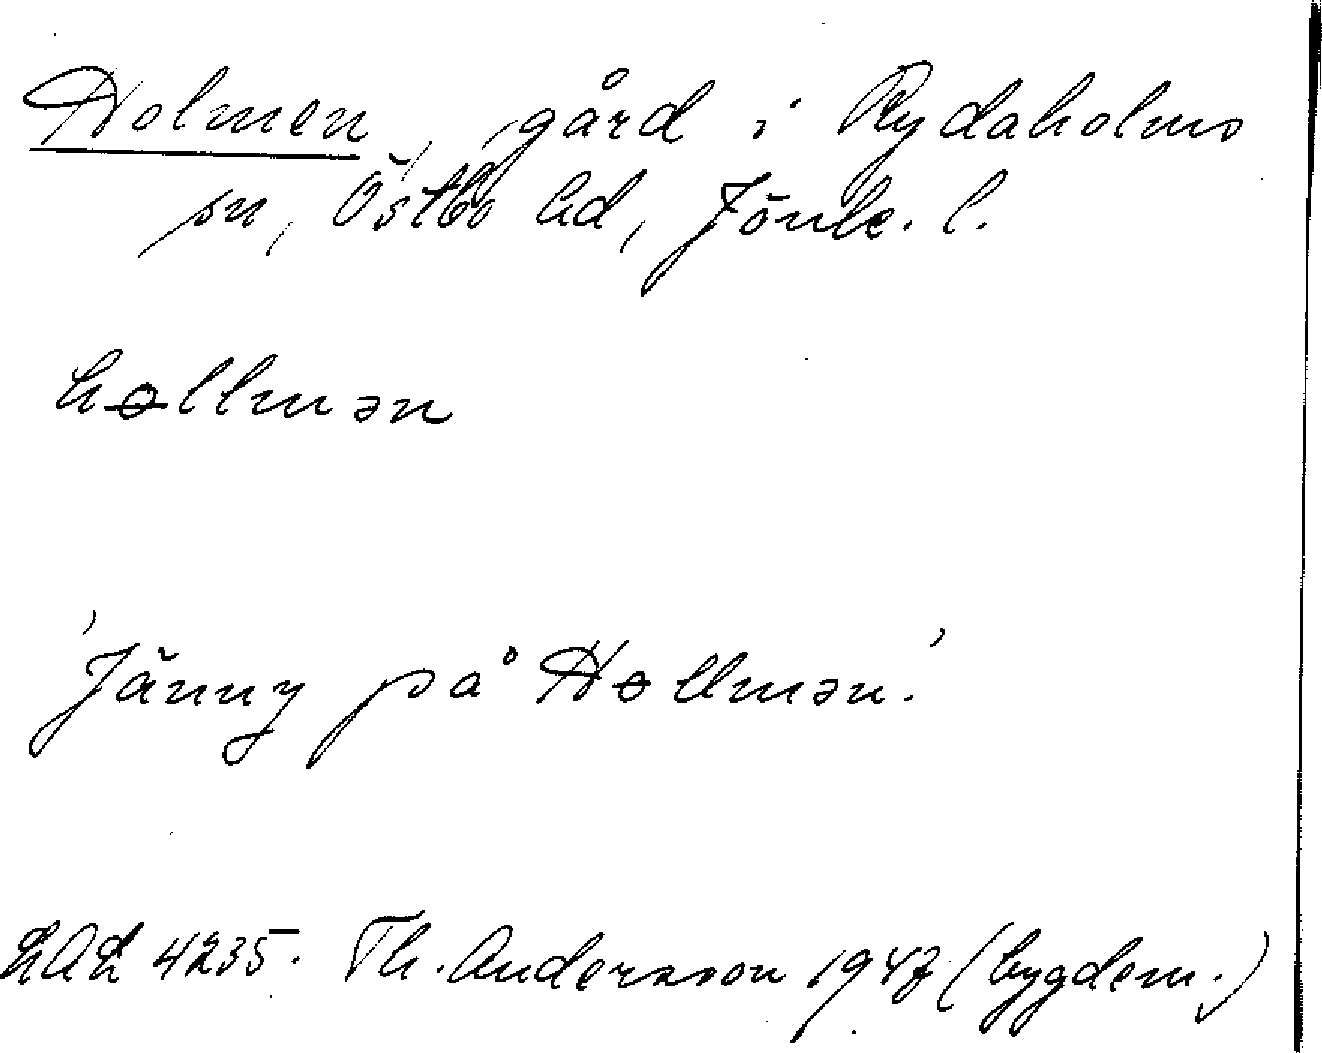 Holmen, gård i Rydaholms
sn, Östbo hd, Jönk. l.
hɵllmən
'Jänny på Hɵllmən.'
LAL 4235. Th. Andersson 1947 (bygdem.)